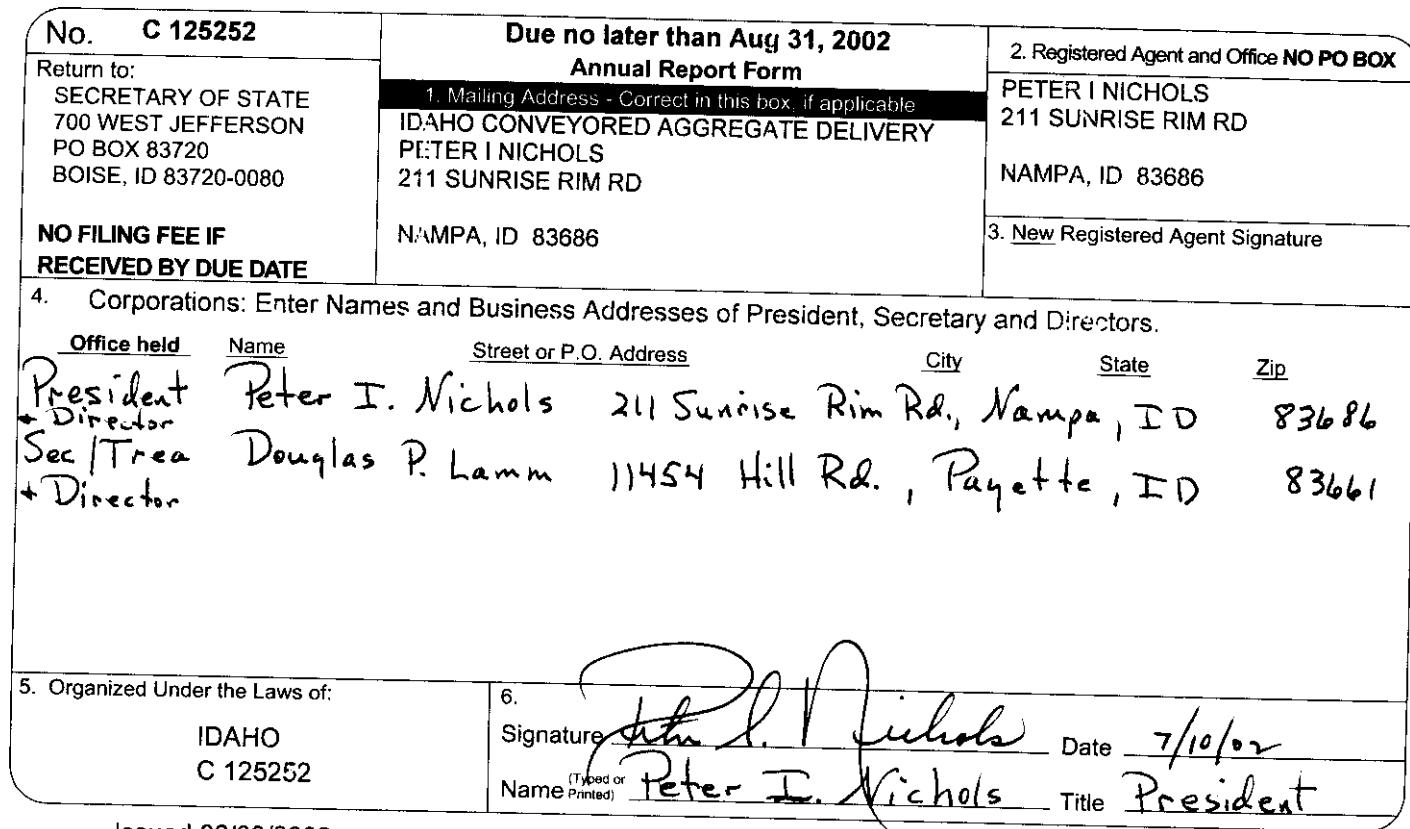 No. C 125252
Return to:
SECRETARY OF STATE
700 WEST JEFFERSON
PO BOX 83720
BOISE, ID 83720-0080
NO FILING FEE IF
RECEIVED BY DUE DATE
Due no later than Aug 31, 2002
Annual Report Form
1. Mailing Address - Correct in this box, if applicable
IDAHO CONVEYORED AGGREGATE DELIVERY
PETER I NICHOLS
211 SUNRISE RIM RD
NAMPA, ID 83686
2. Registered Agent and Office NO PO BOX
PETER I NICHOLS
211 SUNRISE RIM RD
NAMPA, ID 83686
3. New Registered Agent Signature
4. Corporations: Enter Names and Business Addresses of President, Secretary and Directors.
Office held Name Street or P.O. Address City State Zip
President Peter I. Nichols 211 Sunrise Rim Rd., Nampa, ID 83686
+ Director
Sec/Trea Douglas P. Lamm 11454 Hill Rd., Payette, ID 83661
+ Director
5. Organized Under the Laws of:
IDAHO
C 125252
6.
Signature Peter I. Nichols Date 7/10/02
Name (Typed or Printed) Peter I. Nichols Title President